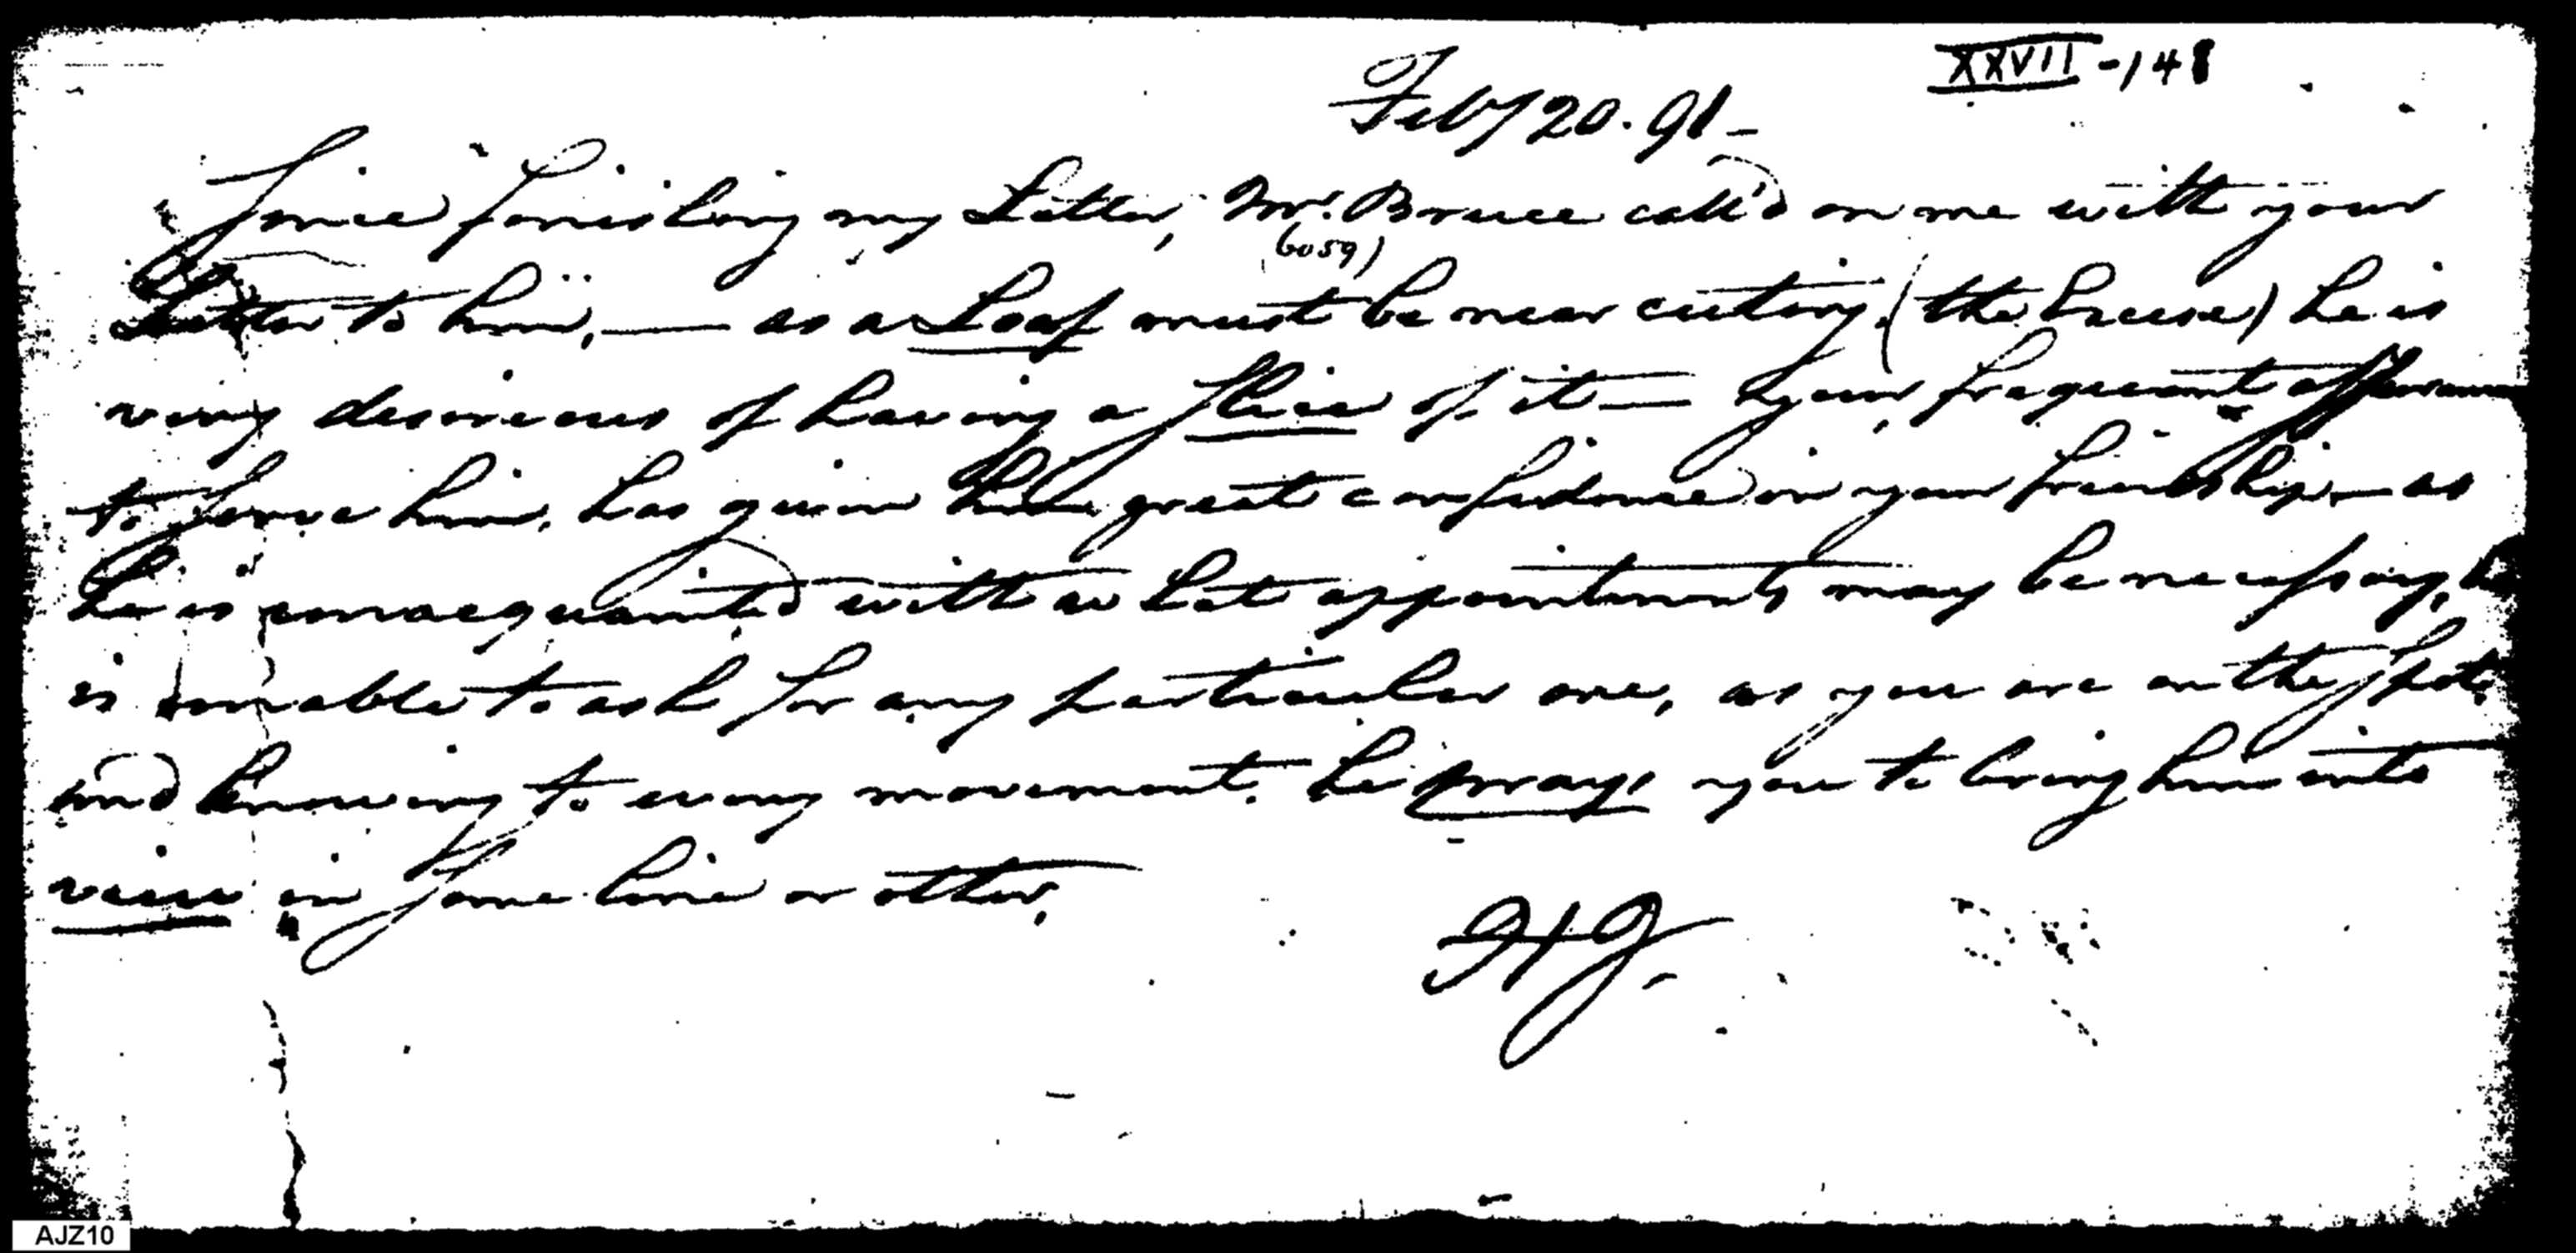 XXVII - 148
Feby 20. 91 -
Since finishing my Letter, Mr. Bruce call'd on me with your
(6059)
Letter to him, — as a Loaf must be near cuting (the Excise) he is
very desireous of having a Slice of it — Your frequent assurance
to serve him, has given him great confidence in your friendship — as
he is unacquainted with what appointments may be necessary, he
is unable to ask for any particular one, as you are on the spot,
and knowing to every movement. he prays you to bring him into
view in some line or other,
HJ.
AJZ10